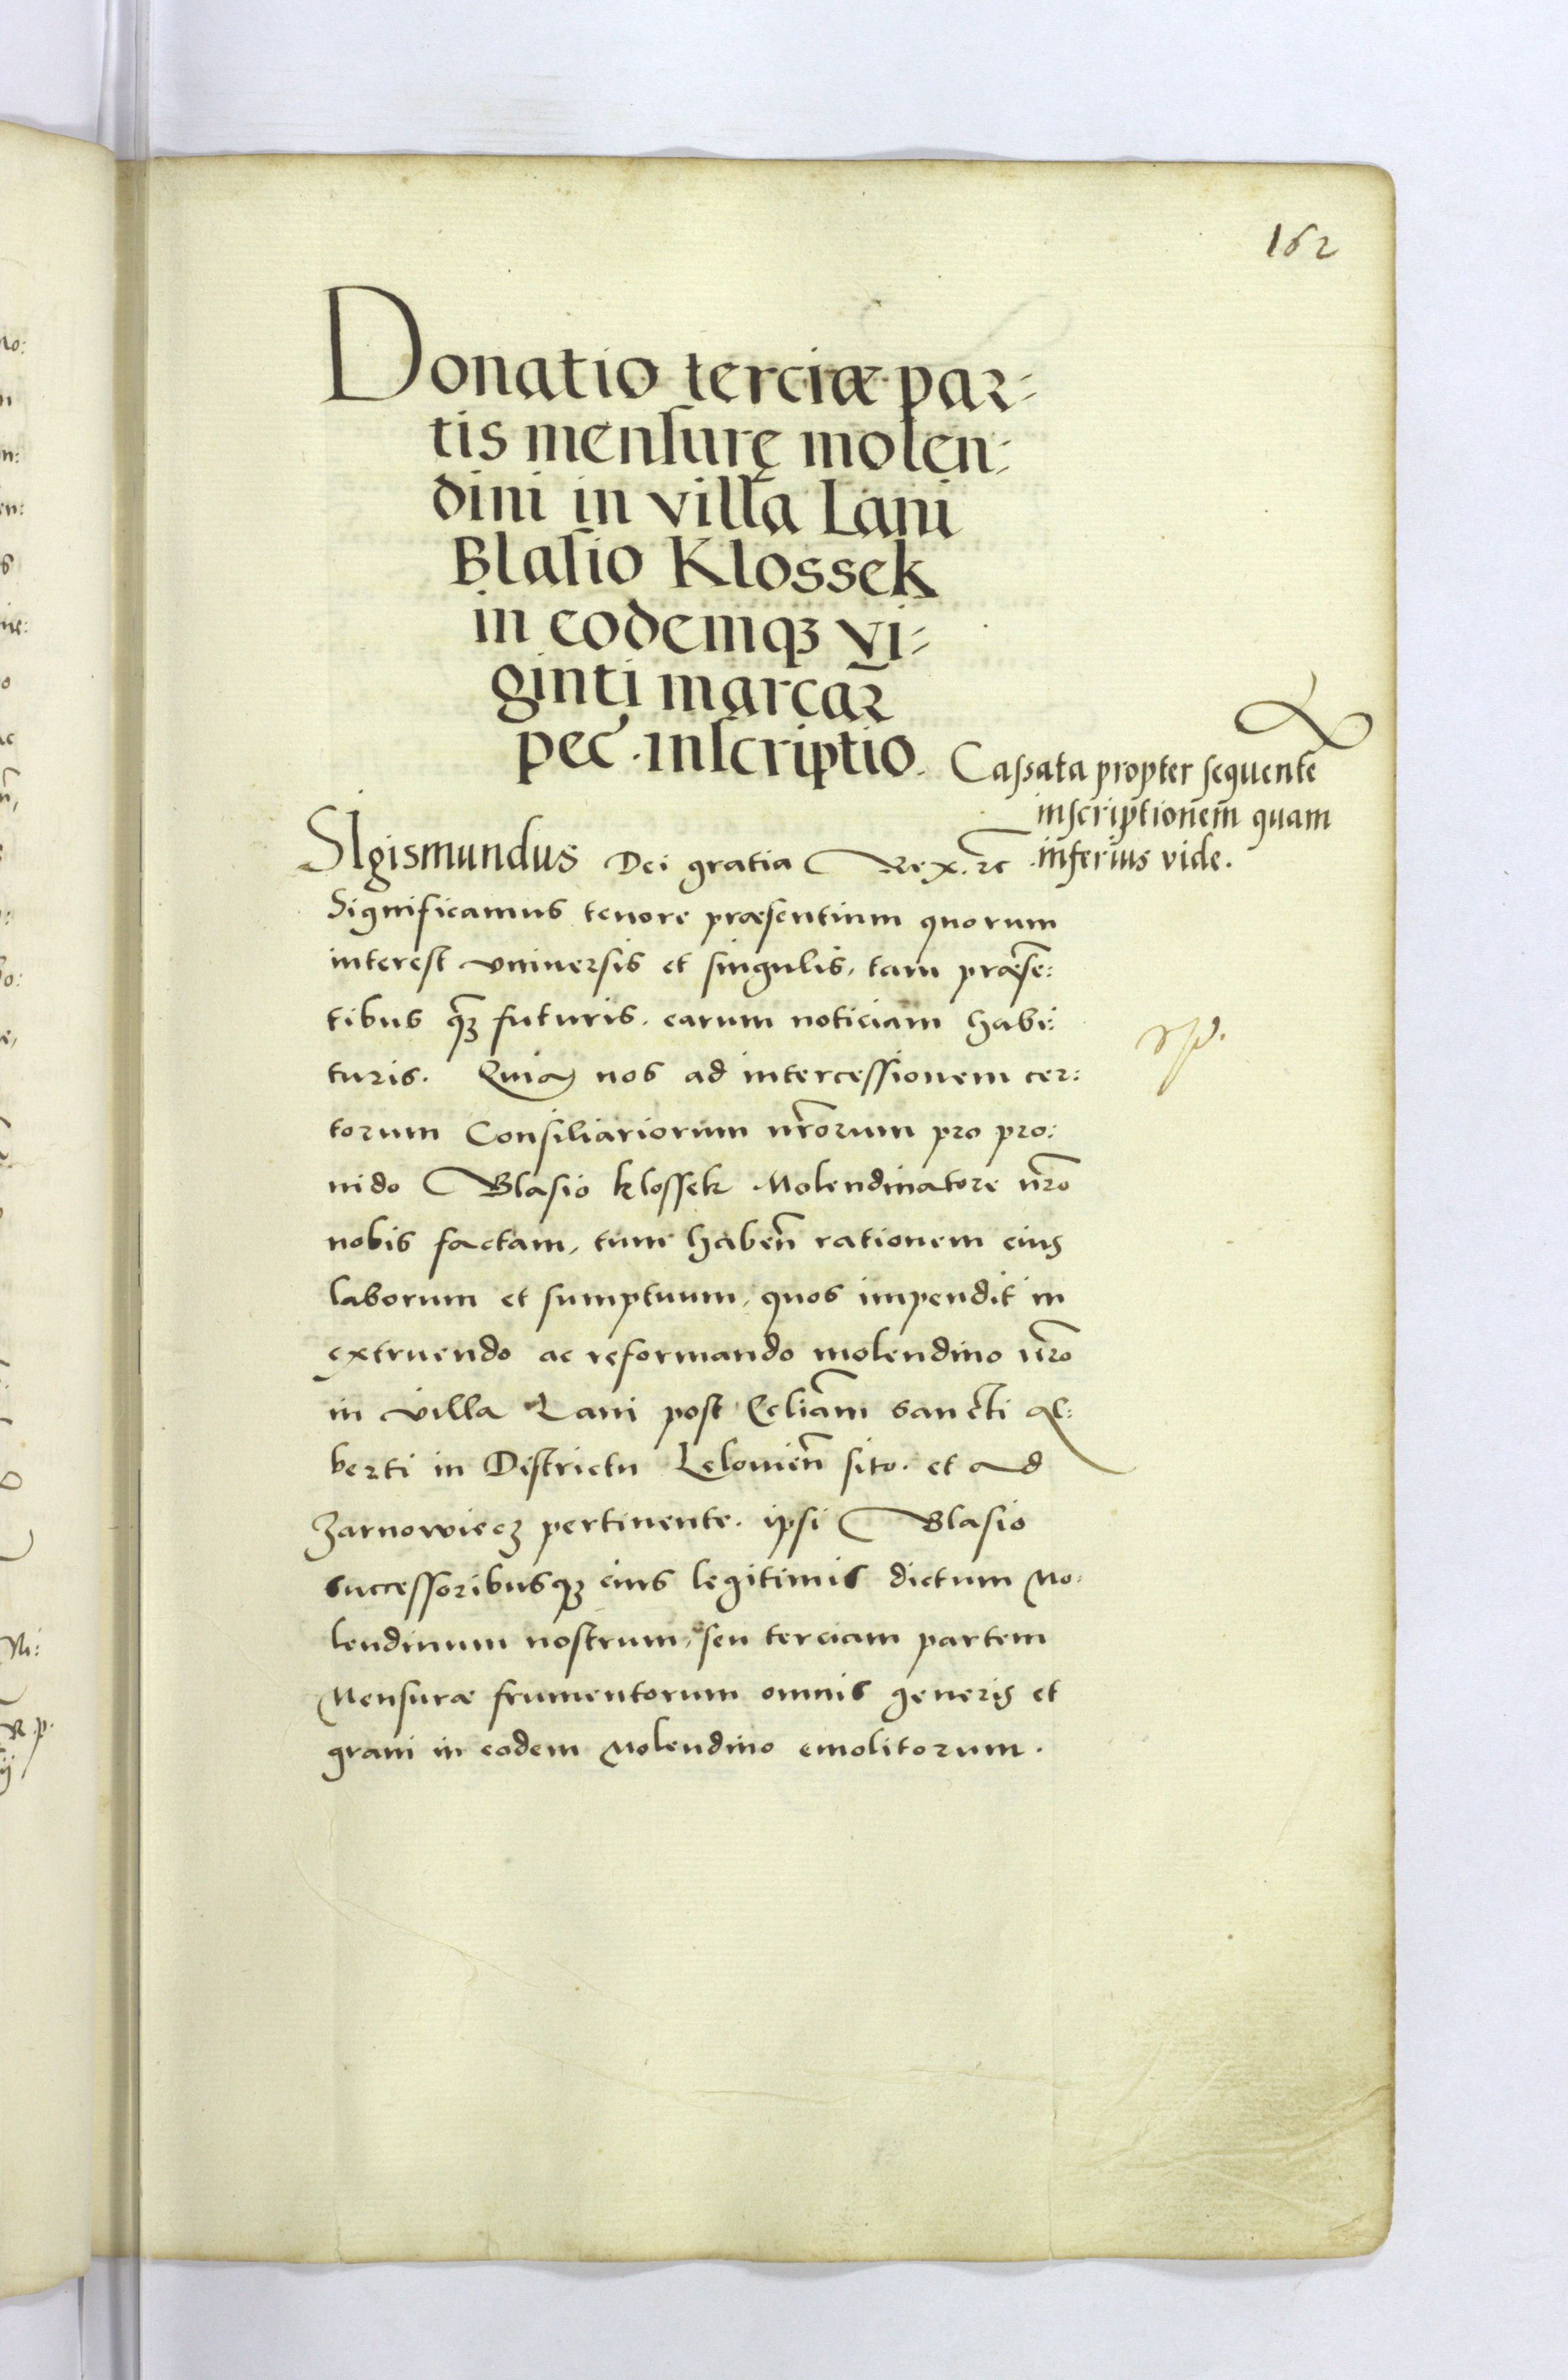 162
Donatio terciæ par-
tis mensurę molen-
dini in villa Lani
Blasio Klossek
in eodemqʒ vi-
ginti marcaꝝ
pec̃. inscriptio.
Cassata propter sequentē
inscriptionem̄ quam
inferius vide.
SIgismundus Dei gratia Rex. ꝛc
Significamus tenore præsentium quorum
interest vniuersis et singulis, tam præsē:
tibus qʒ̃ futuris. earum noticiam habi:
turis. Quia nos ad intercessionem cer:
torum Consiliariorum nr̃orum pro pro:
uido Blasio klossek Molendinatore nr̃o
nobis factam, tum habeñ rationem eius
laborum et sumptuum, quos impendit in
extruendo ac reformando molendino nr̃o
in villa Lani post Ecliam̃ sancti Al:
berti in Districtu Lelouieñ sito. et ad
Zarnowiecz pertinente. ipsi Blasio
successoribusqʒ eius legitimis dictum Mo:
lendinum nostrum, seu terciam partem
Mensuræ frumentorum omnis generis et
grani in eodem Molendino emolitorum.